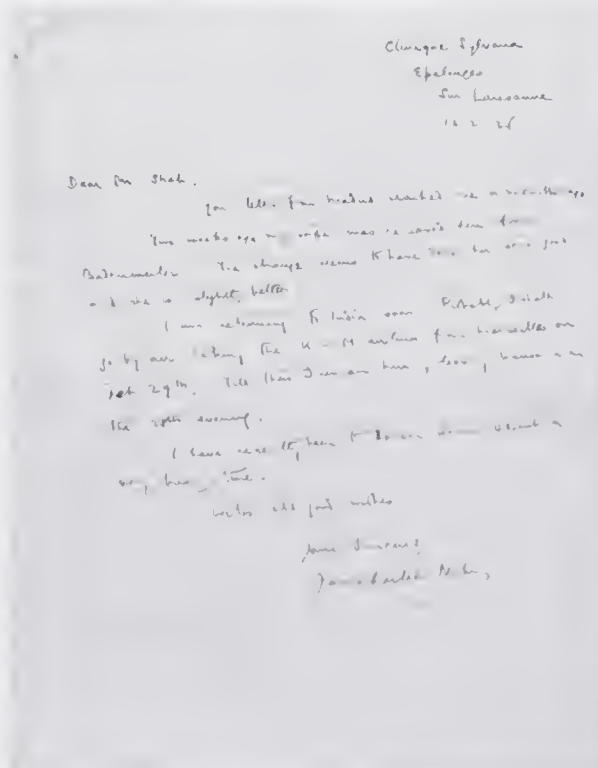 Clinique Sylvana
Epalinges
Sur Lausanne
Dear Mr Shah.
Your letter from Madrid reached me a
Two weeks ago my wife was removed here from
Badenweiler. The change seems to have done her some good
and she is slightly better
I am returning to India soon Probably I shall
go by air taking the K-L-M airlines from Marseilles on
Feb 29th. Till then I am here, leaving Lausanne on
the 28th evening.
I have recently been to London where I spent a
very busy time.
With all good wishes
Yours Sincerely
Jawaharlal Nehru